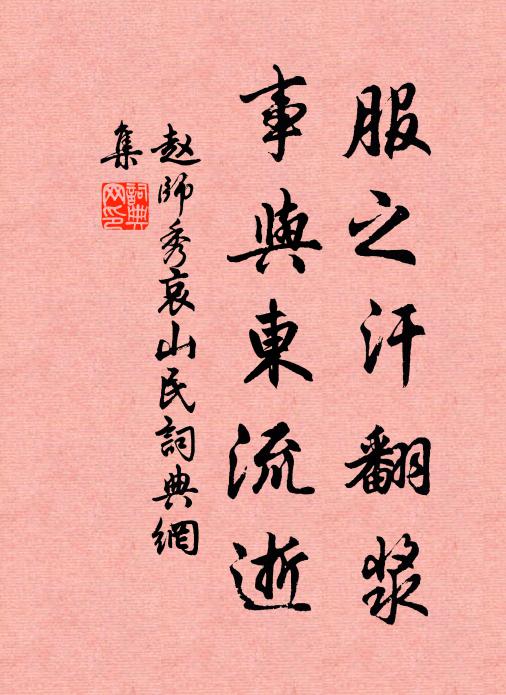 服之汗翻漿
事與東流逝
赵師秀哀山民詞典網
集
詞典网印